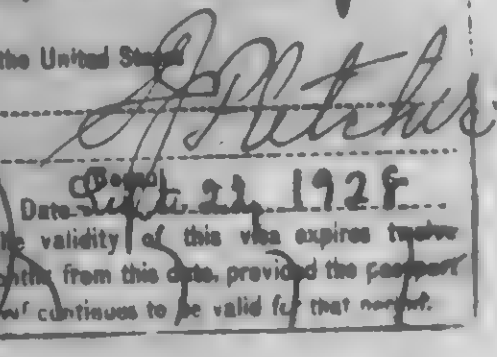 the United States
Fletcher
Date Sept 22, 1928
the validity of this visa expires twelve
months from this date, provided the passport
continues to be valid for that period.